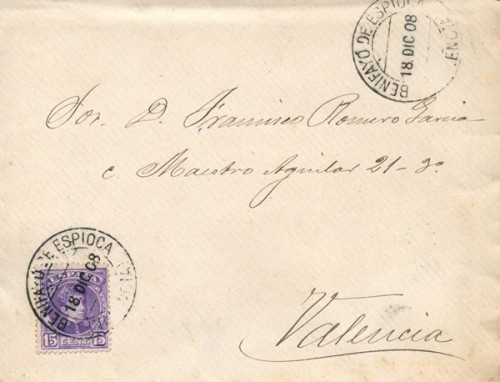 BENIFAYÓ DE ESPIOCA
18 DIC 08
Sor. D. Francisco Romero Garcia
c Maestro Aguilar 21-3º
Valencia
BENIFAYÓ DE ESPIOCA
18 DIC 08
15 CENT 15